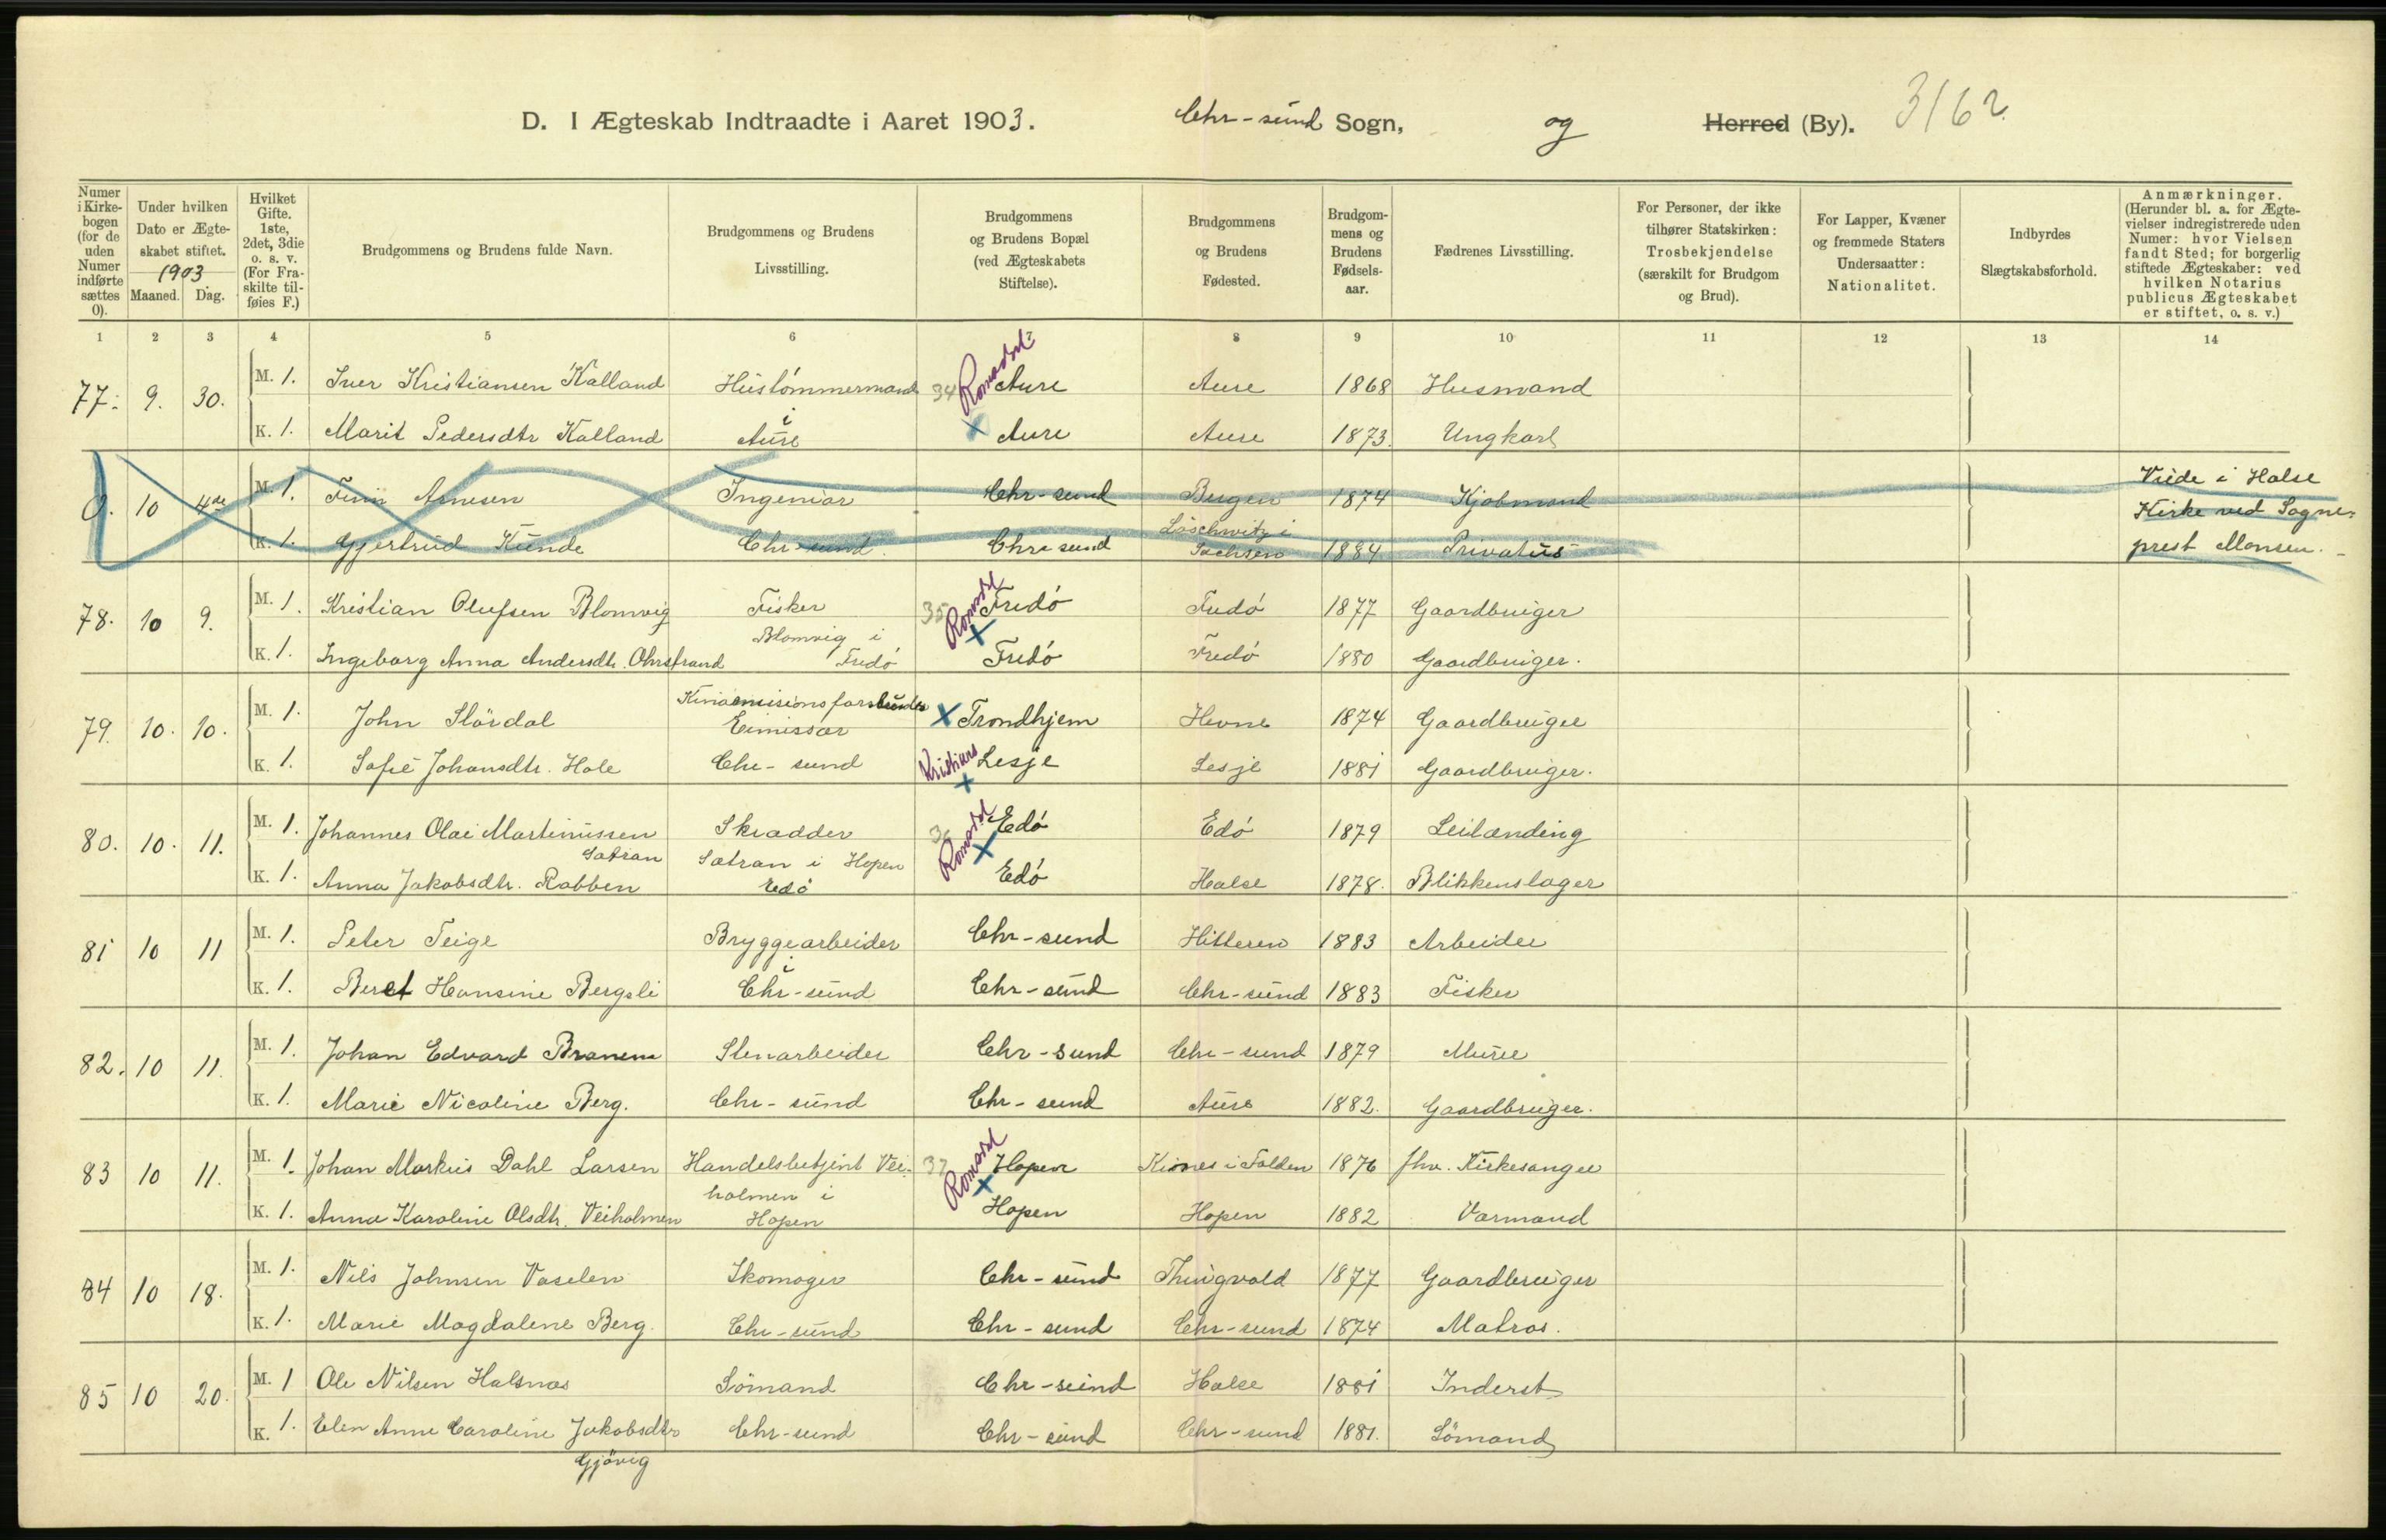 D. I Ægteskab Indtraadte i Aaret 1903. Chr-sund Sogn, og Herred (By). 3162
Numer i Kirkebogen (for de uden Numer indførte sættes 0).
Under hvilken Dato er Ægteskabet stiftet. 1903 Maaned. Dag.
Hvilket Gifte. 1ste, 2det, 3die o. s. v. (For Fraskilte tilføies F.)
Brudgommens og Brudens fulde Navn.
Brudgommens og Brudens Livsstilling.
Brudgommens og Brudens Bopæl (ved Ægteskabets Stiftelse).
Brudgommens og Brudens Fødested.
Brudgommens og Brudens Fødselsaar.
Fædrenes Livsstilling.
For Personer, der ikke tilhører Statskirken: Trosbekjendelse (særskilt for Brudgom og Brud).
For Lapper, Kvæner og fremmede Staters Undersaatter: Nationalitet.
Indbyrdes Slægtskabsforhold.
Anmærkninger. (Herunder bl. a. for Ægtevielser indregistrerede uden Numer: hvor Vielsen fandt Sted; for borgerlig stiftede Ægteskaber: ved hvilken Notarius publicus Ægteskabet er stiftet, o. s. v.)
1 2 3 4 5 6 7 8 9 10 11 12 13 14
77. 9. 30. M. 1. Iver Kristiansen Kalland Hustömmermand 34 Romsdal Aure Aure 1868 Husmand
K. 1. Marit Pedersdtr Kalland i Aure x Aure Aure 1873. Ungkarl
0. 10 4de M. 1. Finn Arnesen Ingeniør Chr-sund Bergen 1874 Kjøbmand Viede i Halse Kirke ved Sogneprest Monsen.
K. 1. Gjertrud Kunde Chr-sund. Chr-sund Löschwitz i Sachsen 1884 Privatus
78. 10 9. M. 1. Kristian Olufsen Blomvig Fisker 35 Romsdal Fredö Fredö 1877 Gaardbruger
K. 1. Ingeborg Anna Andersdtr. Ohrstrand Blomvig i Fredö x Fredö Fredö 1880 Gaardbruger.
79. 10. 10. M. 1. John Slördal Kinamisionsforbundets Eimissær x Trondhjem Hevne 1874 Gaardbruger
K. 1. Sofie Johansdtr. Hole Chr-sund Kristians x Lesje Lesje 1881 Gaardbruger.
80. 10. 11. M. 1. Johannes Olai Martinussen Sætran Skrædder 36 Romsdal Edö Edö 1879 Leilænding
K. 1. Anna Jakobsdtr. Rabben Sætran i Hopen Edö x Edö Halse 1878. Blikkenslager
81 10 11 M. 1. Peter Teige Bryggearbeider Chr-sund Hitteren 1883 Arbeider
K. 1. Beret Hansine Bergsli i Chr-sund Chr-sund Chr-sund 1883 Fisker
82. 10 11. M. 1. Johan Edvard Branem Stenarbeider Chr-sund Chr-sund 1879 Murer
K. 1. Marie Nicoline Berg. Chr-sund Chr-sund Aure 1882. Gaardbruger.
83 10 11. M. 1. Johan Markus Dahl Larsen Handelsbetjent Vei- 37 Romsdal Hopen i Folden 1876 fhv. Kirkesanger
K. 1. Anna Karoline Olsdtr. Veiholmen holmen i Hopen x Hopen Hopen 1882 Varmand
84 10 18. M. 1. Nils Johnsen Vaselen Skomager Chr-sund Thingvold 1877 Gaardbruger
K. 1. Marie Magdalene Berg. Chr-sund Chr-sund Chr-sund 1874 Matros.
85 10 20. M. 1 Ole Nilsen Halsnæs Sömand Chr-sund Halse 1881 Inderst
K. 1. Elen Anne Caroline Jakobsdtr Gjövig Chr-sund Chr-sund Chr-sund 1881. Sömand